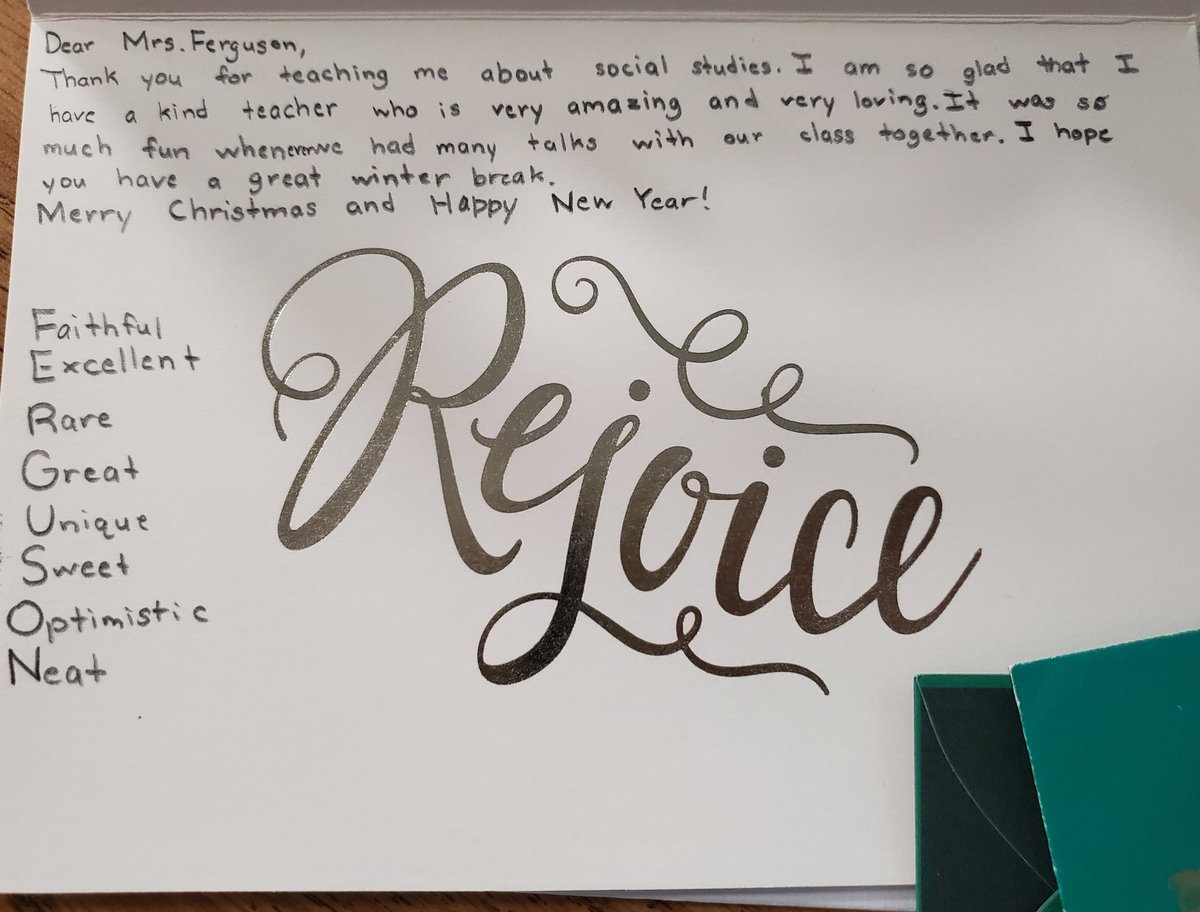 Dear Mrs. Ferguson,
Thank you for teaching me about social studies. I am so glad that I
have a kind teacher who is very amazing and very loving. It was so
much fun whenever we had many talks with our class together. I hope
you have a great winter break.
Merry Christmas and Happy New Year!
Faithful
Excellent
Rare
Great
Unique
Sweet
Optimistic
Neat
Rejoice